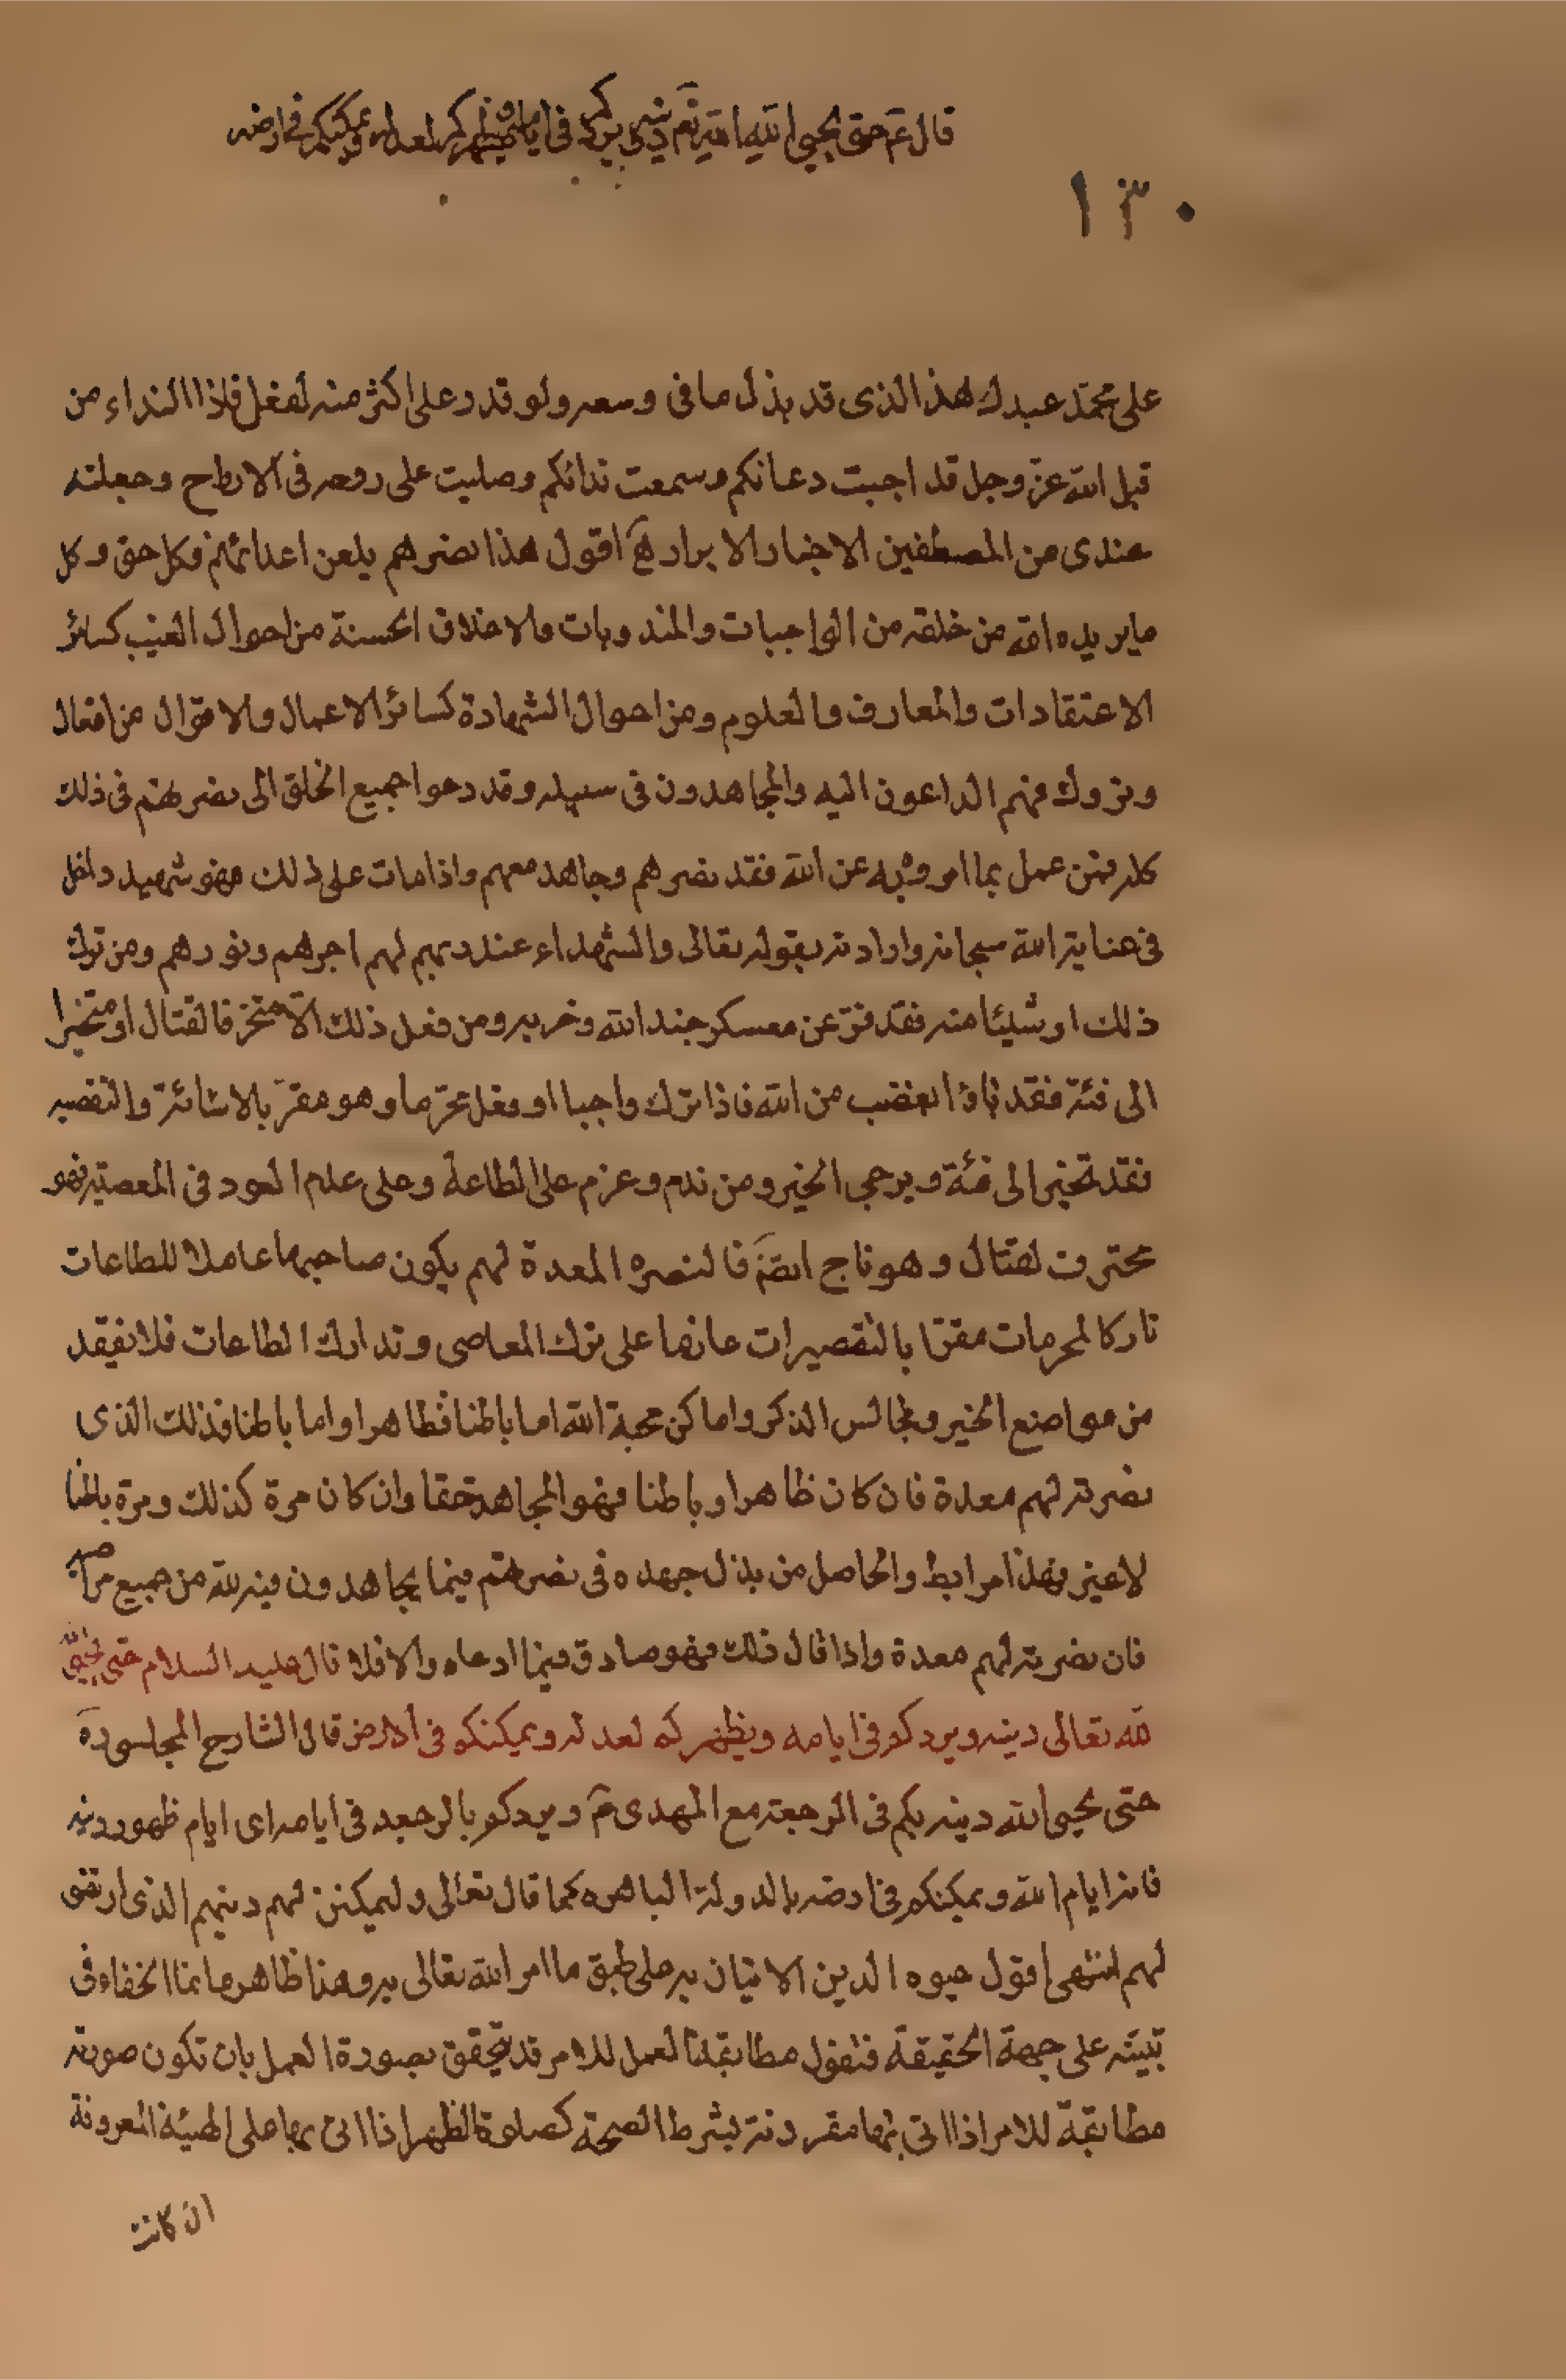 قال ع حتى يحيي الله تع دينه بكم ويردكم في ايامه ويظهركم لعدله ويمكنكم في ارضه
١٣٠
على محمد عبدك هذا الذى قد بذل ما فى وسعه ولو قدر على اكثر منه لفعل فاذا النداء من
قبل الله عزّ وجل قد اجبت دعائكم وسمعت ندائكم وصليت على روحه فى الارواح وجعلته
عندى من المصطفين الاخيار الابرار هَ اقول هذا نصرهم بلعن اعدائهم فكل حق وكل
ما يريده الله من خلقه من الواجبات والمندوبات والاخلاق الحسنة من احوال الغيب كسائر
الاعتقادات والمعارف والعلوم ومن احوال الشهادة كسائر الاعمال والاقوال من افعال
وتروك فهم الداعون اليه والمجاهدون فى سبيله وقد دعوا جميع الخلق الى نصرتهم فى ذلك
كله فمن عمل بما امروا به عن الله فقد نصرهم وجاهد معهم واذا مات على ذلك فهو شهيد داخل
فى عناية الله سبحانه وارادته بقوله تعالى والشهداء عند ربهم لهم اجرهم ونورهم ومن ترك
ذلك او شيئا منه فقد فرّ عن معسكر جند الله وحزبه ومن فعل ذلك الا متحرفا لقتال او متحيزا
الى فئة فقد باؤا بغضب من الله فاذا ترك واجبا او فعل محرّما وهو مقرّ بالاسائة والتقصير
فقد تحيز الى فئة ويرجى الخير ومن ندم وعزم على الطاعة وعلى عدم العود فى المعصية فهو
محترف لقتال وهو ناج ايضَ فالنصره المعدة لهم يكون صاحبها عاملا للطاعات
تاركا لمحرمات مقرّا بالتقصيرات عازما على ترك المعاصى وتدارك الطاعات فلا يفقد
من مواضع الخير ومجالس الذكر واماكن محبة الله اما باطنا فظاهرا واما باطنا فذلك الذى
نصرته لهم معدة فان كان ظاهرا وباطنا فهو المجاهد حقا وان كان مرة كذلك ومرة باطنا
لا غير فهذا مرابط والحاصل من بذل جهده فى نصرتهم فيما يجاهدون فيه لله من جميع مراضيه
فان نصرته لهم معدة واذا قال ذلك فهو صادق فيما ادعاه والا فلا قال عليه السلام حتى يحيى
الله تعالى دينه ويردكم فى ايامه ويظهركم لعدله ويمكنكم فى ارضه قال الشارح المجلسى ره
حتى يحيى الله دينه بكم فى الرجعة مع المهدى عَ ويردكم بالرجعة فى ايامه اى ايام ظهور دينه
فانه ايام الله ويمكنكم فى ارضه بالدولة الباهره كما قال تعالى وليمكنن لهم دينهم الذى ارتضى
لهم انتهى اقول حيوه الدين الاتيان به على طبق ما امر الله تعالى به وهذا ظاهر وانما الخفاء فى
تبينه على جهة الحقيقة فنقول مطابقة العمل للامر قد يتحقق بصورة العمل بان تكون صورته
مطابقة للامر اذا اتى بها مقرونة بشرط الصحة كصلوة الظهر اذا اتى بها على الهيئة المعروفة
ان كانت